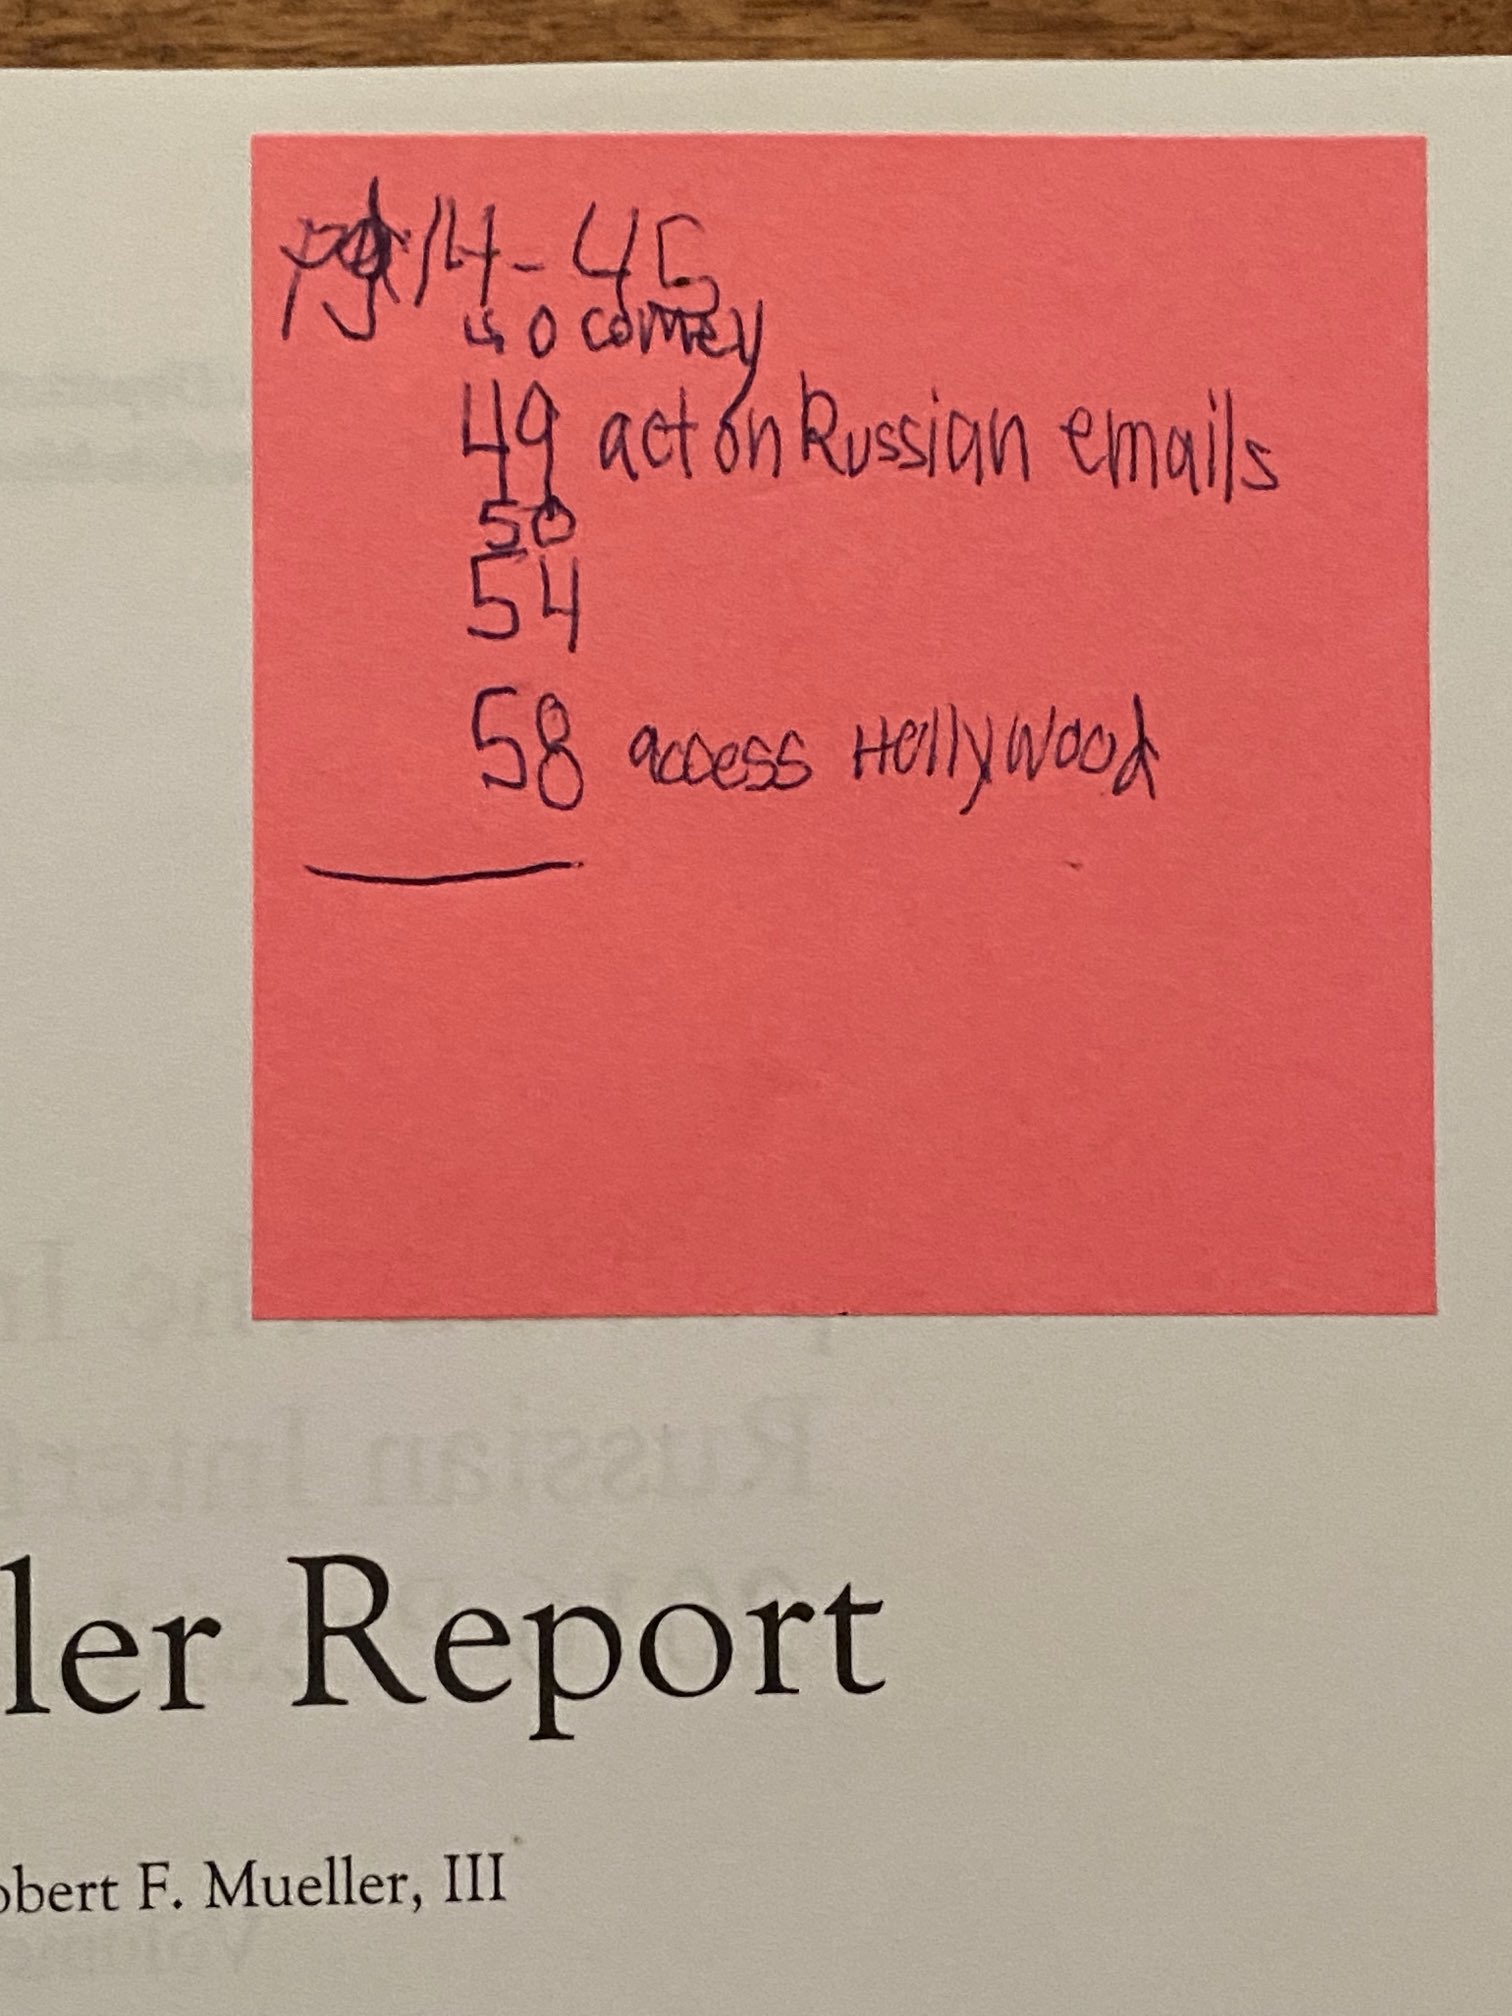 pg 14-45
40 comey
49 act on Russian emails
50
54
58 access Hollywood
ler Report
obert F. Mueller, III